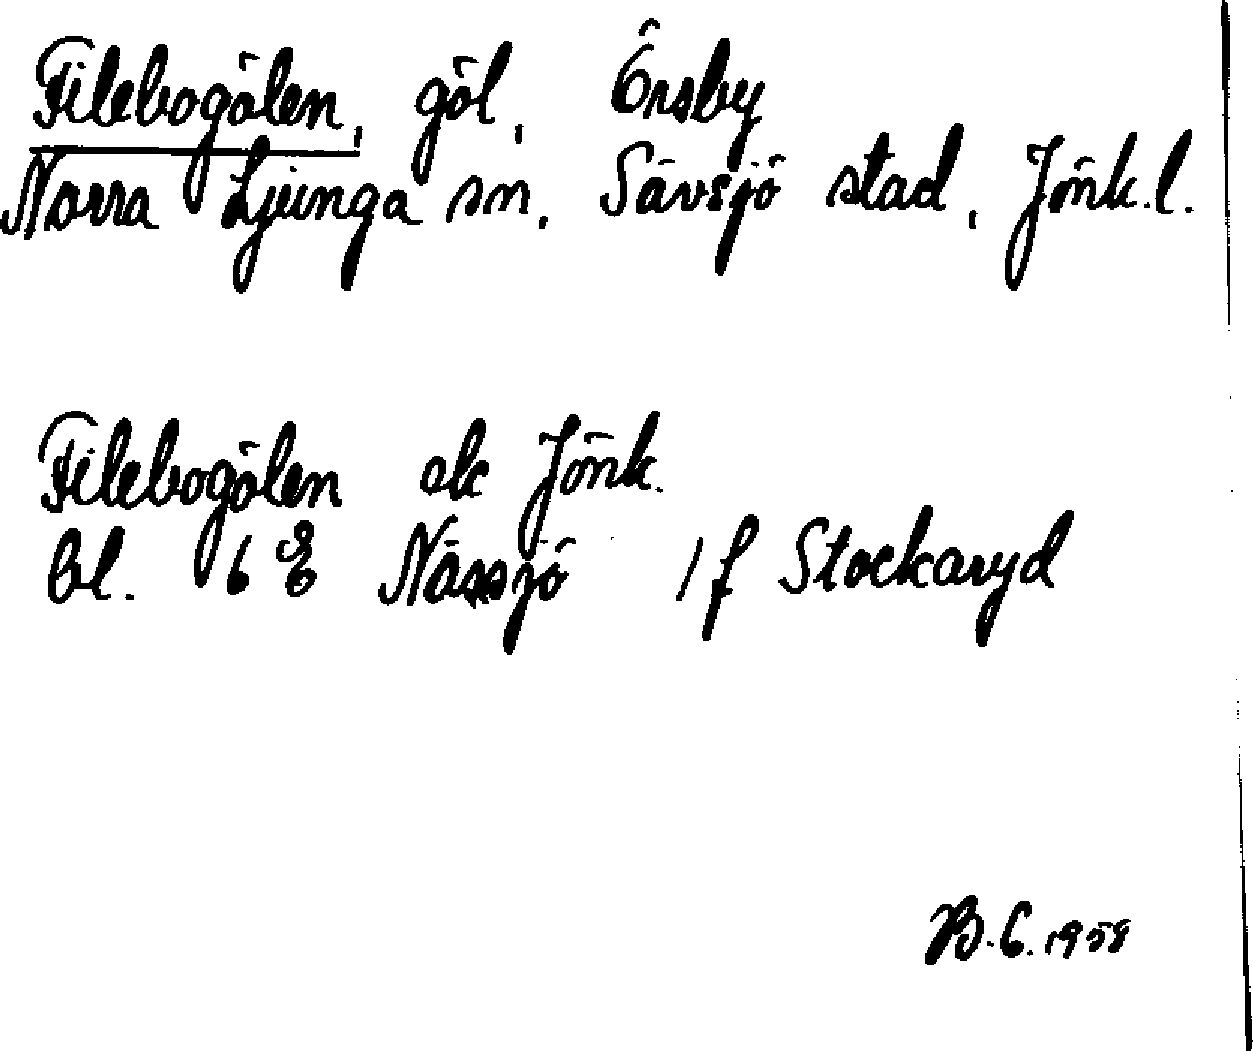 Filebogölen, göl, Örsby
Norra Ljunga sn. Sävsjö stad, Jönk.l.
Filebogölen ek Jönk.
bl. 6 E Nässjö 1 f Stockaryd
B.C. 1958